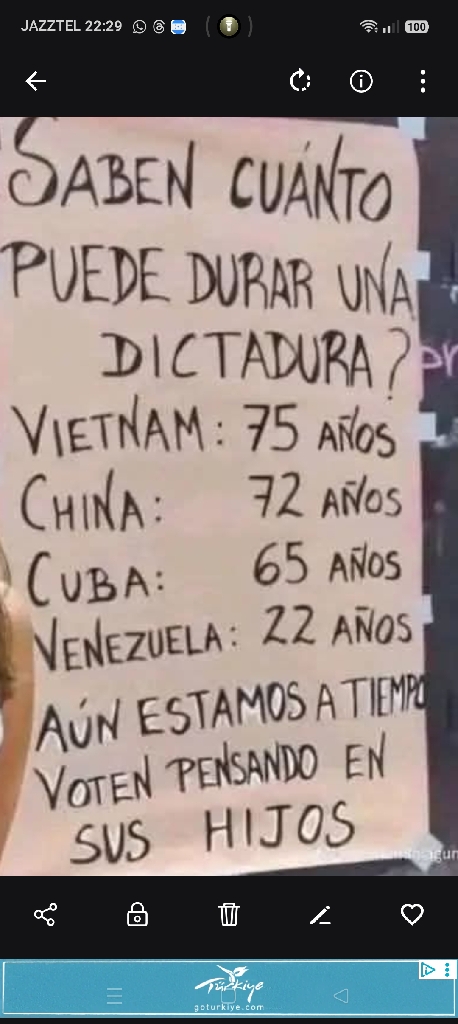 JAZZTEL 22:29
100
SABEN CUÁNTO
PUEDE DURAR UNA
DICTADURA?
VIETNAM: 75 AÑOS
CHINA: 72 AÑOS
CUBA: 65 AÑOS
VENEZUELA: 22 AÑOS
AÚN ESTAMOS A TIEMPO
VOTEN PENSANDO EN
SUS HIJOS
Türkiye
goturkiye.com